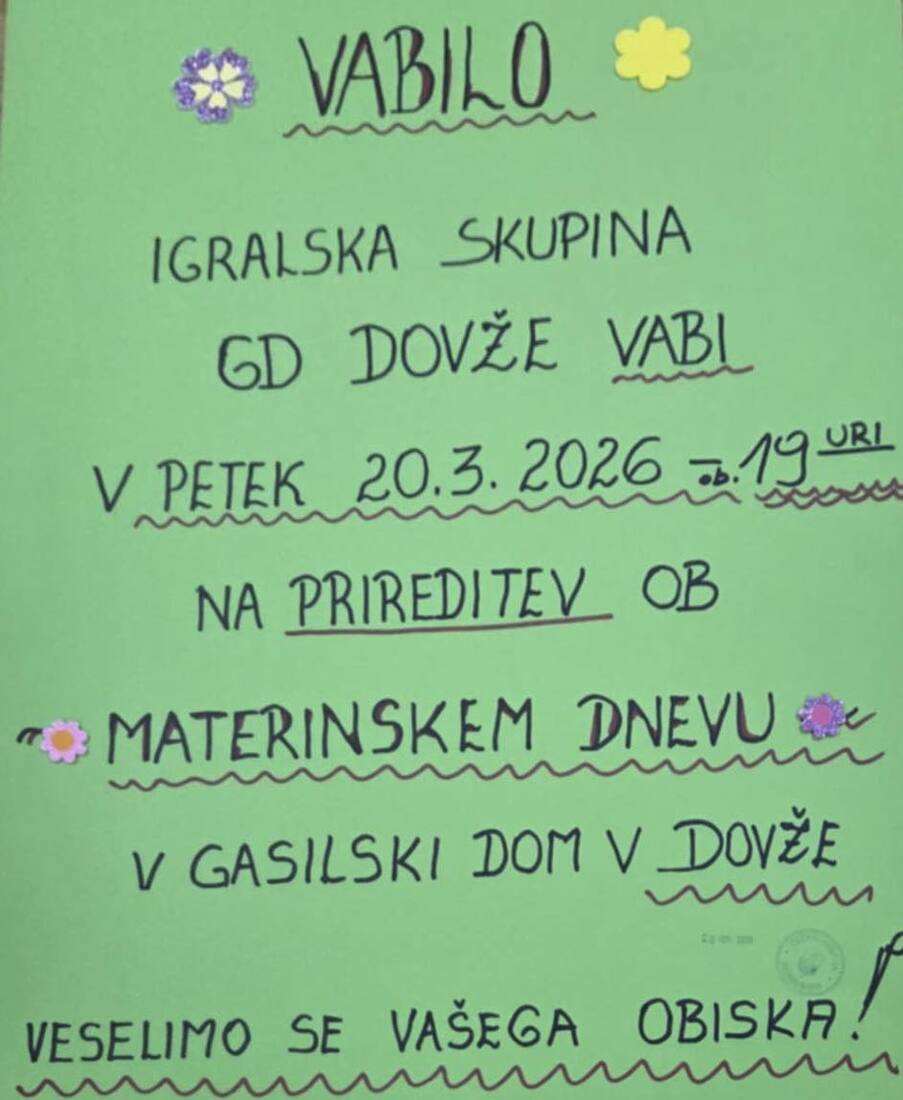 VABILO
IGRALSKA SKUPINA
GD DOVŽE VABI
V PETEK 20.3.2026 ob. 19 URI
NA PRIREDITEV OB
MATERINSKEM DNEVU
V GASILSKI DOM V DOVŽE
VESELIMO SE VAŠEGA OBISKA!